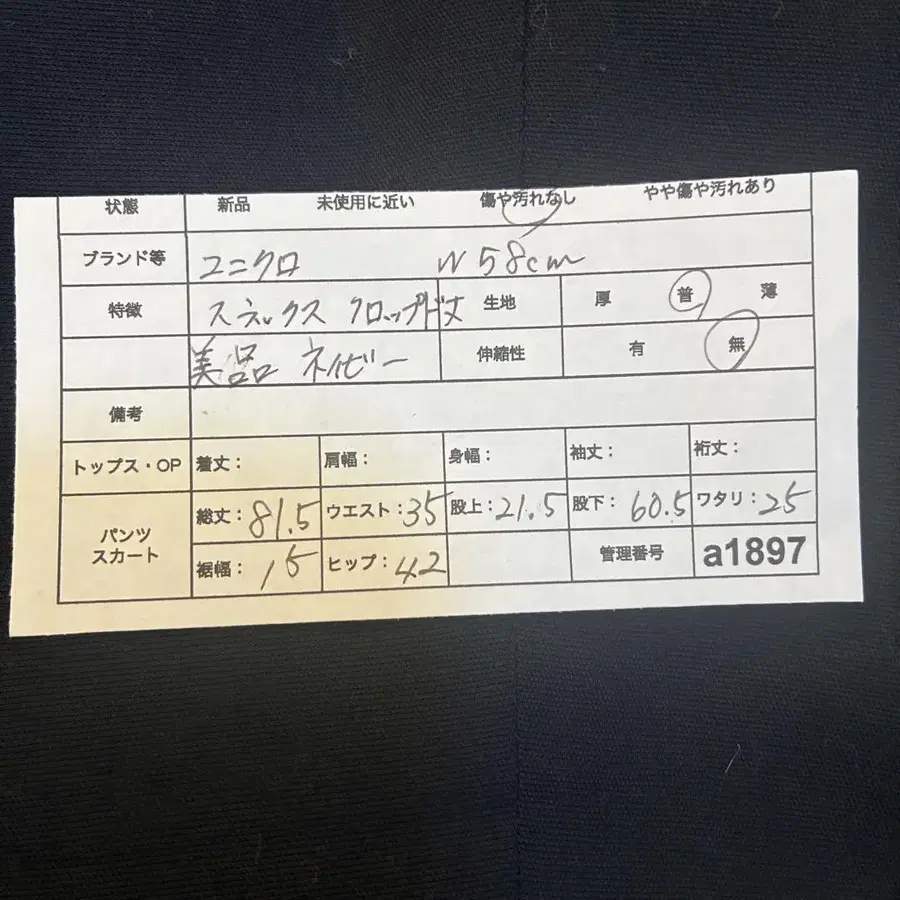 状態 新品 未使用に近い 傷や汚れなし やや傷や汚れあり
ブランド等 ユニクロ W58cm
特徴 スラックス クロップド丈 生地 厚 普 薄
美品 ネイビー 伸縮性 有 無
備考
トップス・OP 着丈: 肩幅: 身幅: 袖丈: 裄丈:
パンツ スカート 総丈:81.5 ウエスト:35 股上:21.5 股下:60.5 ワタリ:25
裾幅:15 ヒップ:42 管理番号 a1897